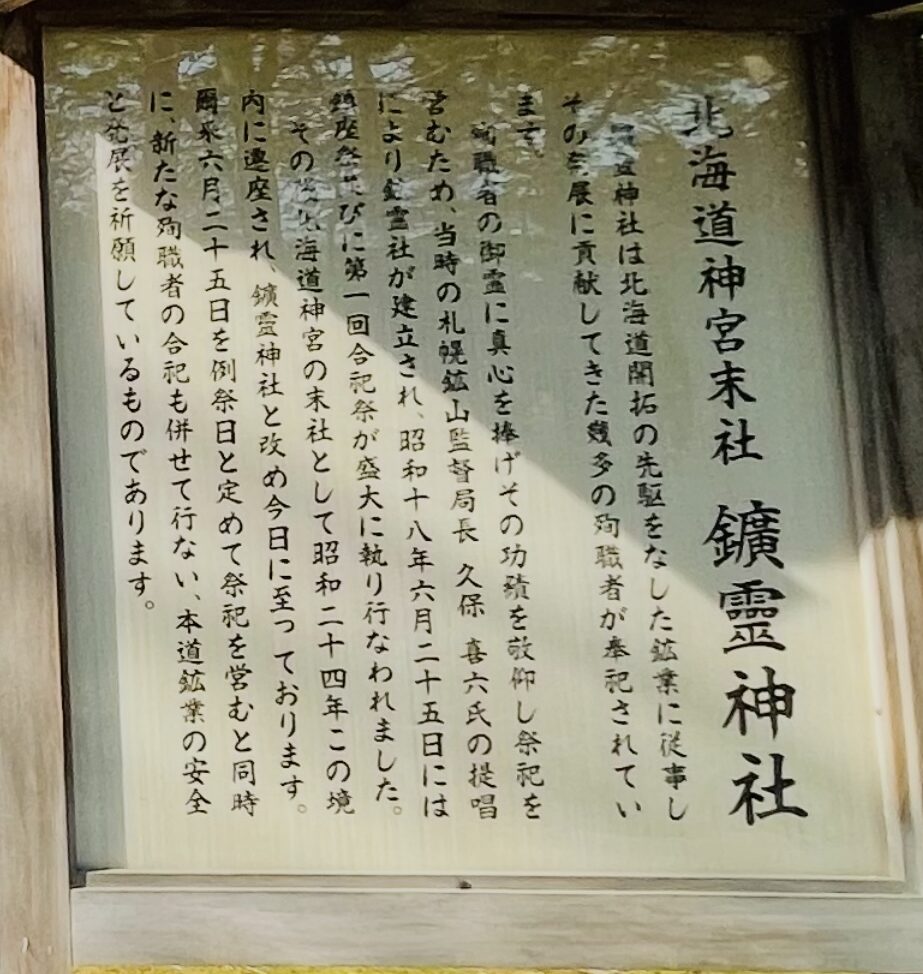 北海道神宮末社 鑛霊神社
鑛霊神社は北海道開拓の先駆をなした鉱業に従事し
その発展に貢献してきた幾多の殉職者が奉祀されてい
ます。
殉職者の御霊に真心を捧げその功績を敬仰し祭祀を
営むため、当時の札幌鉱山監督局長 久保 喜六氏の提唱
により鑛霊社が建立され、昭和十八年六月二十五日には
鎮座祭並びに第一回合祀祭が盛大に執り行なわれました。
その後北海道神宮の末社として昭和二十四年この境
内に遷座され、鑛霊神社と改め今日に至っております。
爾来六月二十五日を例祭日と定めて祭祀を営むと同時
に、新たな殉職者の合祀も併せて行ない、本道鉱業の安全
と発展を祈願しているものであります。